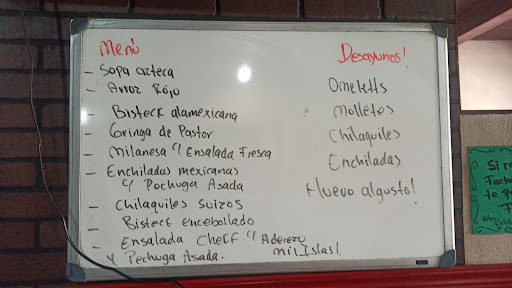 Menú
- Sopa azteca
- Arroz Rojo
- Bisteck alamexicana
- Gringa de Pastor
- Milanesa c/ Ensalada Fresca
- Enchiladas mexicanas
c/ Pechuga Asada
- Chilaquiles suizos
- Bisteck encebollado
- Ensalada Cheff c/ Aderezo
y Pechuga Asada. mil Islas!
Desayunos!
Omeletts
Molletes
Chilaquiles
Enchiladas
Huevo algusto!